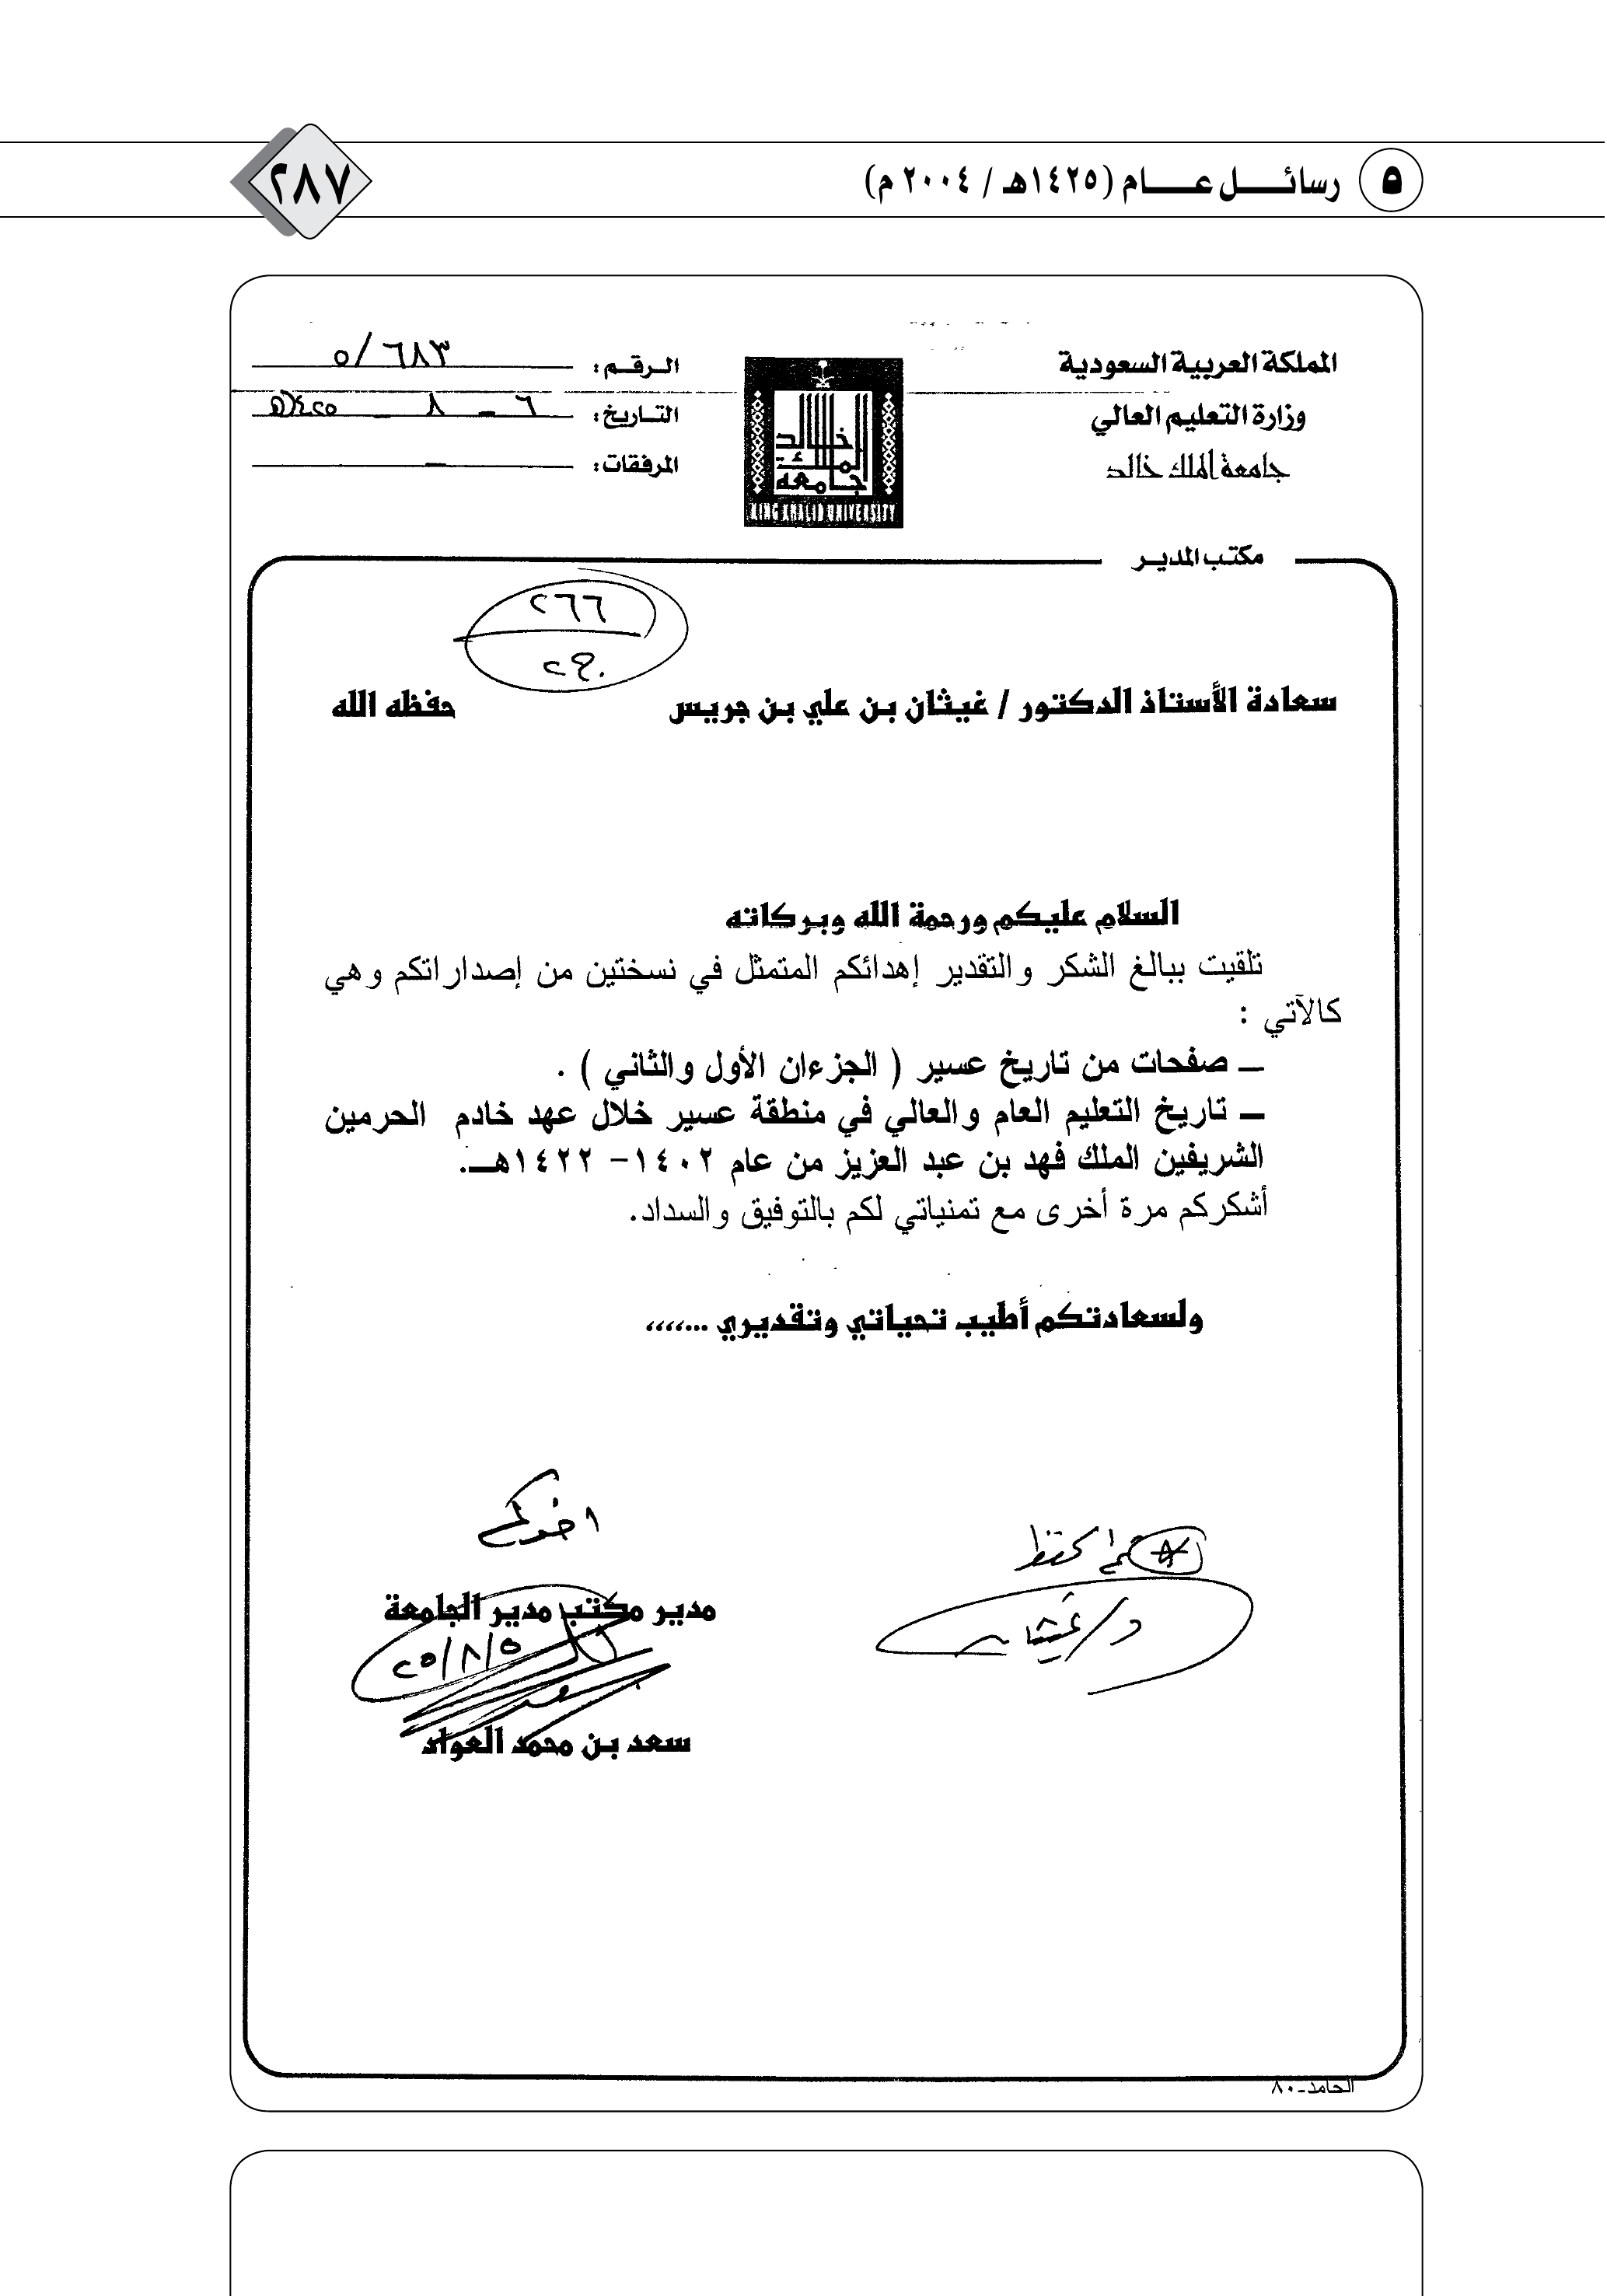 ٥ رسائـــل عــــام (١٤٢٥هـ / ٢٠٠٤ م)
٢٨٧
المملكة العربية السعودية
وزارة التعليم العالي
جامعة الملك خالد
مكتب المدير
جامعة الملك خالد
KING KHALID UNIVERSITY
الرقم: ٥/٦٨٣
التاريخ: ٦ - ٨ - ١٤٢٥هـ
المرفقات: -
٢٦٦
سعادة الأستاذ الدكتور / غيثان بن علي بن جريس حفظه الله
السلام عليكم ورحمة الله وبركاته
تلقيت ببالغ الشكر والتقدير إهدائكم المتمثل في نسختين من إصداراتكم وهي
كالآتي :
ــ صفحات من تاريخ عسير ( الجزءان الأول والثاني ) .
ــ تاريخ التعليم العام والعالي في منطقة عسير خلال عهد خادم الحرمين
الشريفين الملك فهد بن عبد العزيز من عام ١٤٠٢- ١٤٢٢هــ.
أشكركم مرة أخرى مع تمنياتي لكم بالتوفيق والسداد.
ولسعادتكم أطيب تحياتي وتقديري ...،،،،
اخوكم
مدير مكتب مدير الجامعة
٢٥/٨/٥
سعد بن محمد العواد
د/غيثان
الحامد-٨٠